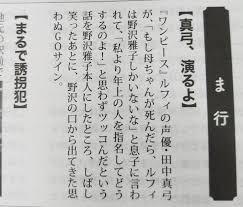 ま行
【真弓、演るよ】
『ワンピース』ルフィの声優・田中真弓
が、「もし母ちゃんが死んだら、ルフィ
は野沢雅子しかいないな」と息子に言わ
れて、「私より年上の人を指名してどう
するのよ!」と思わずツッコんだという
話を野沢雅子本人にしたところ、しばし
野沢の口から出てきた思
わぬGOサイン
【まるで誘拐犯】